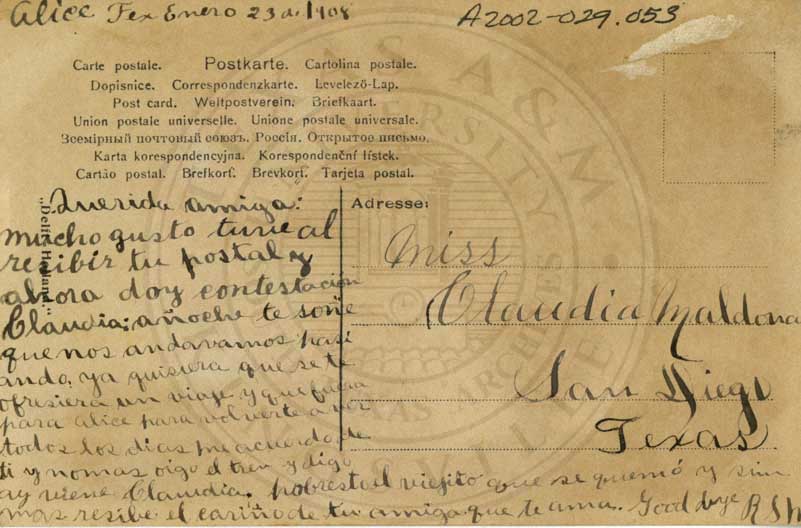 Alice Tex Enero 23 de 1908
A2002-029.053
Carte postale. Postkarte. Cartolina postale.
Dopisnice. Correspondenzkarte. Levelező-Lap.
Post card. Weltpostverein. Briefkaart.
Union postale universelle. Unione postale universale.
Всемірный почтовый союзъ. Россія. Открытое письмо.
Karta korespondencyjna. Korespondenční lístek.
Cartão postal. Brefkort. Brevkort. Tarjeta postal.
Querida amiga:
mucho gusto tuve al
recibir tu postal y
ahora doy contestación
Claudia: añoche te soñe
que nos andavamos pasi
ando, ya quisiera que se te
ofresiera un viaje y que fuera
para Alice para volverte a ver
todos los dias me acuerdo de
ti y nomas oigo el tren y digo
ay viene Claudia. pobresta el viejito que se quemó y sin
mas resibe el cariño de tu amiga que te ama. Good bye
Adresse:
Miss
Claudia Maldona
San Diego
Texas